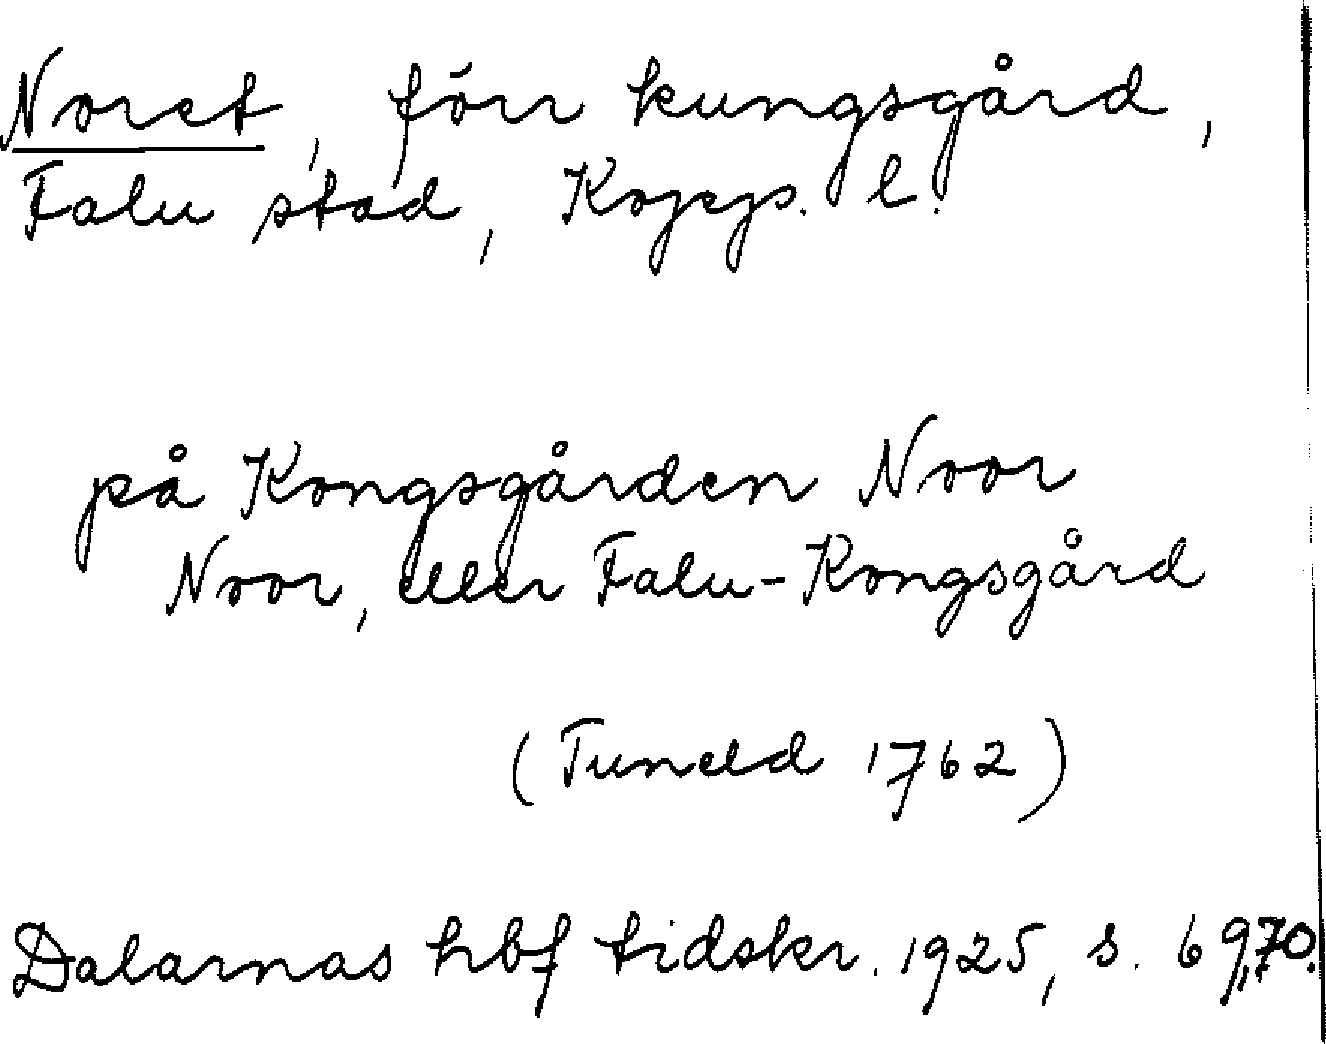 Noret, förr kungsgård,
Falu stad, Kopp. l.
på Kongsgården Noor
Noor, eller Falu-Kongsgård
(Tuneld 1762)
Dalarnas hbf tidskr. 1925, s. 69,70.